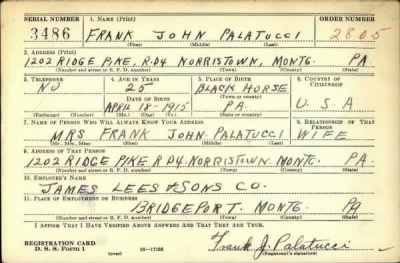 SERIAL NUMBER 1. NAME (Print) ORDER NUMBER
3486 FRANK JOHN PALATUCCI 2805
(First) (Middle) (Last)
2. ADDRESS (Print)
1202 RIDGE PIKE, R.D4. NORRISTOWN, MONTG. PA
(Number and street or R. F. D. number) (Town) (County) (State)
3. TELEPHONE 4. AGE IN YEARS 5. PLACE OF BIRTH 6. COUNTRY OF CITIZENSHIP
NO 25 BLACK HORSE
DATE OF BIRTH (Town or county)
APRIL-18-1915 PA. U.S.A
(Exchange) (Number) (Mo.) (Day) (Yr.) (State or country)
7. NAME OF PERSON WHO WILL ALWAYS KNOW YOUR ADDRESS 8. RELATIONSHIP OF THAT PERSON
MRS FRANK JOHN PALATUCCI WIFE
(Mr., Mrs., Miss) (First) (Middle) (Last)
9. ADDRESS OF THAT PERSON
1202 RIDGE PIKE R D4. NORRISTOWN. MONTG. PA
(Number and street or R. F. D. number) (Town) (County) (State)
10. EMPLOYER'S NAME
JAMES LEES & SONS CO.
11. PLACE OF EMPLOYMENT OR BUSINESS
BRIDGEPORT. MONTG. PA
(Number and street or R. F. D. number) (Town) (County) (State)
I AFFIRM THAT I HAVE VERIFIED ABOVE ANSWERS AND THAT THEY ARE TRUE.
REGISTRATION CARD
D. S. S. Form 1 (over) 16-17105 Frank J. Palatucci
(Registrant's signature)